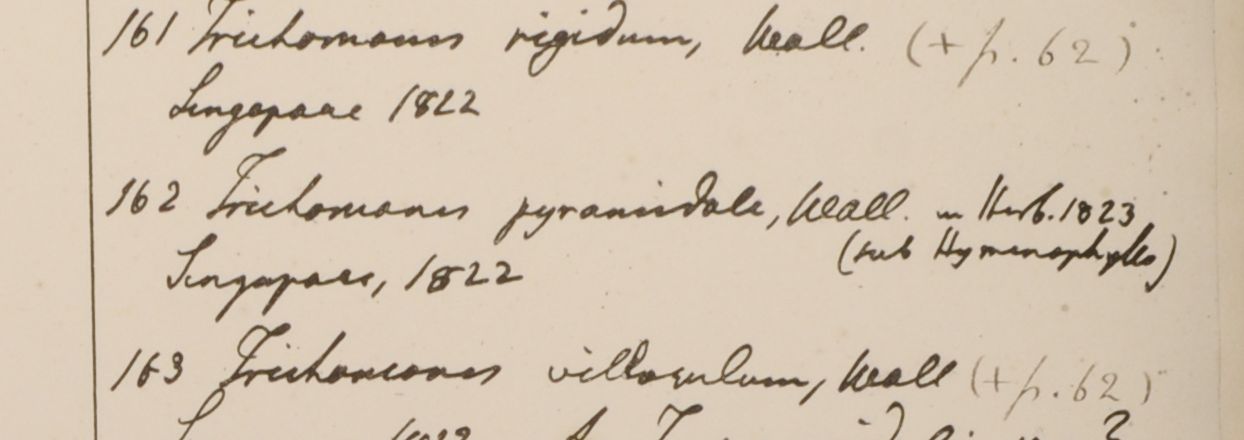 161 Trichomanes rigidum, Wall. (+ p. 62)
Singapore 1822
162 Trichomanes pyramidale, Wall. in Herb. 1823
(sub Hymenophyllo)
Singapore, 1822
163 Trichomanes villosulum, Wall (+ p. 62)